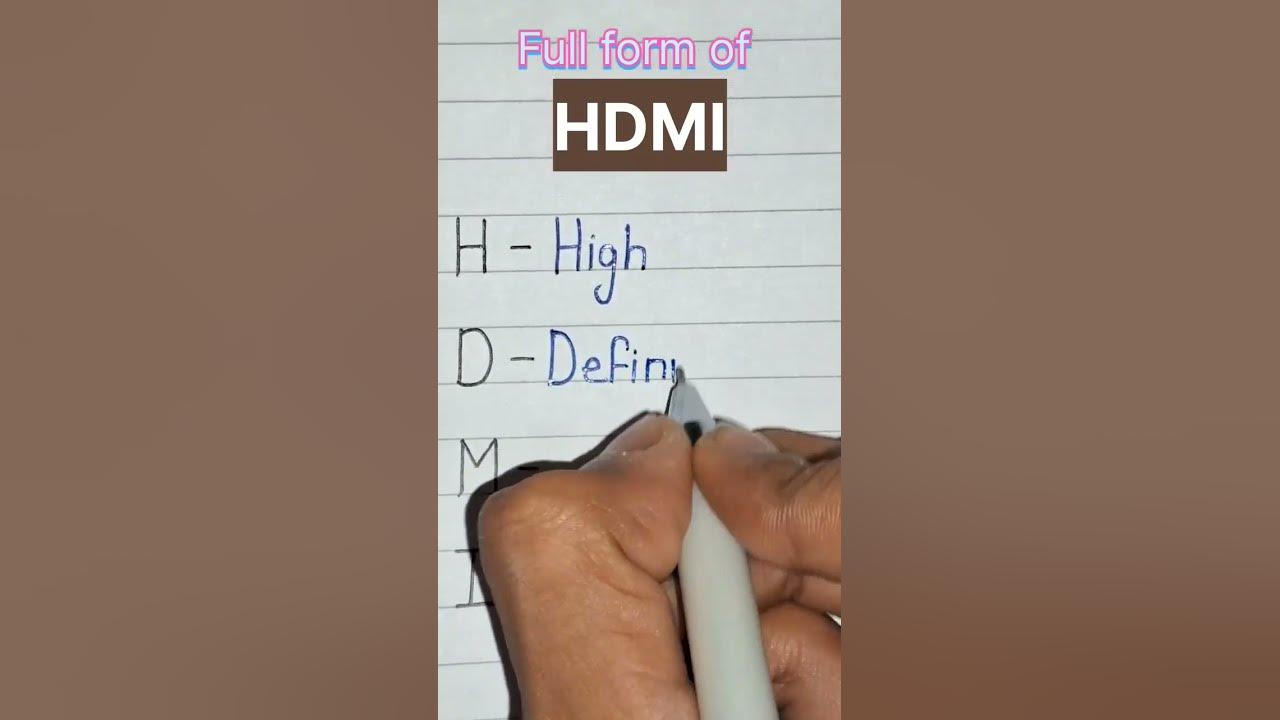 Full form of
HDMI
H - High
D - Defini
M -
I